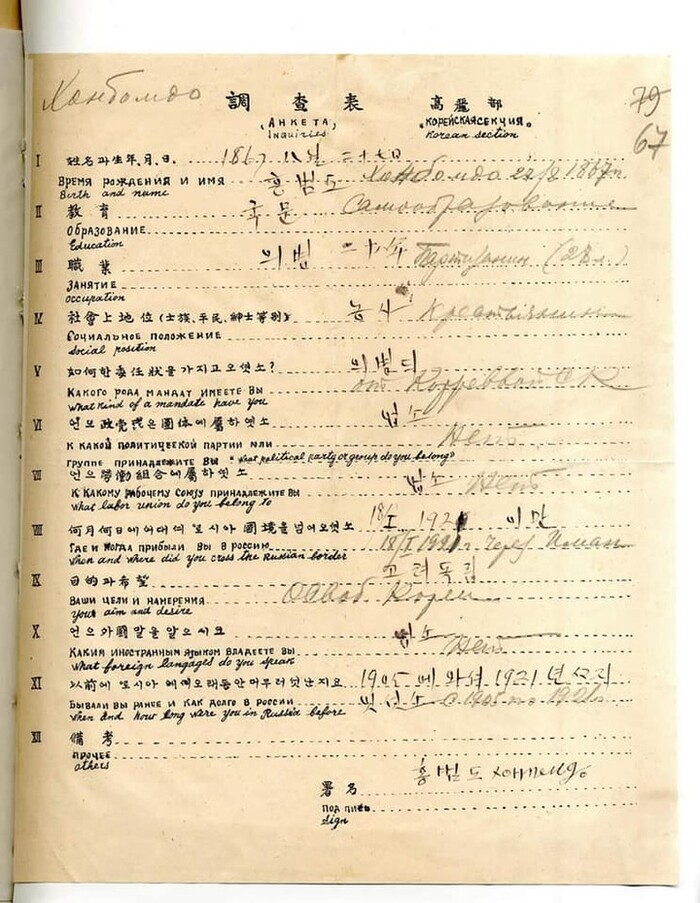 Ханбомдо
79
67
調 查 表 高麗部
(АНКЕТА) "КОРЕЙСКАЯ СЕКЦИЯ"
Inquiries Korean section
I 姓名과生年.月.日. 1867 八月 二十七日
ВРЕМЯ РОЖДЕНИЯ И ИМЯ 홍범도 Ханбомдо 27/8 1867г.
Birth and name
II 教育 국문 Самообразование
ОБРАЗОВАНИЕ
Education
III 職業 의병 二十八年 Партизанин (28 л.)
ЗАНЯТИЕ
occupation
IV 社會上地位(士族、平民、紳士等別) 농사 Крестьянин
СОЧИАЛЬНОЕ ПОЛОЖЕНИЕ
social position
V 如何한委任狀을가지고오엿소? 의병대
КАКОГО РОДА МАНДАТ ИМЕЕТЕ ВЫ от
what kind of a mandate have you
VI 언으政党或은團体에屬하엿소 업소
К КАКОЙ ПОЛИТИЧЕСКОЙ ПАРТИИ ИЛИ Нет
ГРУППЕ ПРИНАДЛЕЖИТЕ ВЫ "what political party or group do you belong?
VII 언으勞働組合에屬하엿소 업소
К КАКОМУ РАБОЧЕМУ СОЮЗУ ПРИНАДЛЕЖИТЕ ВЫ Нет
what labor union do you belong to
VIII 何月何日에어대여 로시아 國境을넘어오엿소 18/I 1921 이만
ГДЕ И КОГДА ПРИБЫЛИ ВЫ В РОССИЮ 18/I 1921 г. через Иман
when and where did you cross the Russian border
IX 目的과希望 고려독립
ВАШИ ЦЕЛИ И НАМЕРЕНИЯ Освоб. Кореи
your aim and desire
X 언으外國말을알으시오 업소
КАКИЯ ИНОСТРАННЫМ ЯЗЫКОМ ВЛАДЕЕТЕ ВЫ Нет
what foreign langages do you speak
XI 以前에로시아에예오래동안머무러잇난지요 1905에와셔 1921년싯지
БЫВАЛИ ВЫ РАНЕЕ И КАК ДОЛГО В РОССИИ 잇엇소 с 1905 по 1921г.
when and how long were you in Russia before
XII 備考
ПРОЧЕЕ
others
홍범도
署名
ПОДПИСЬ
sign